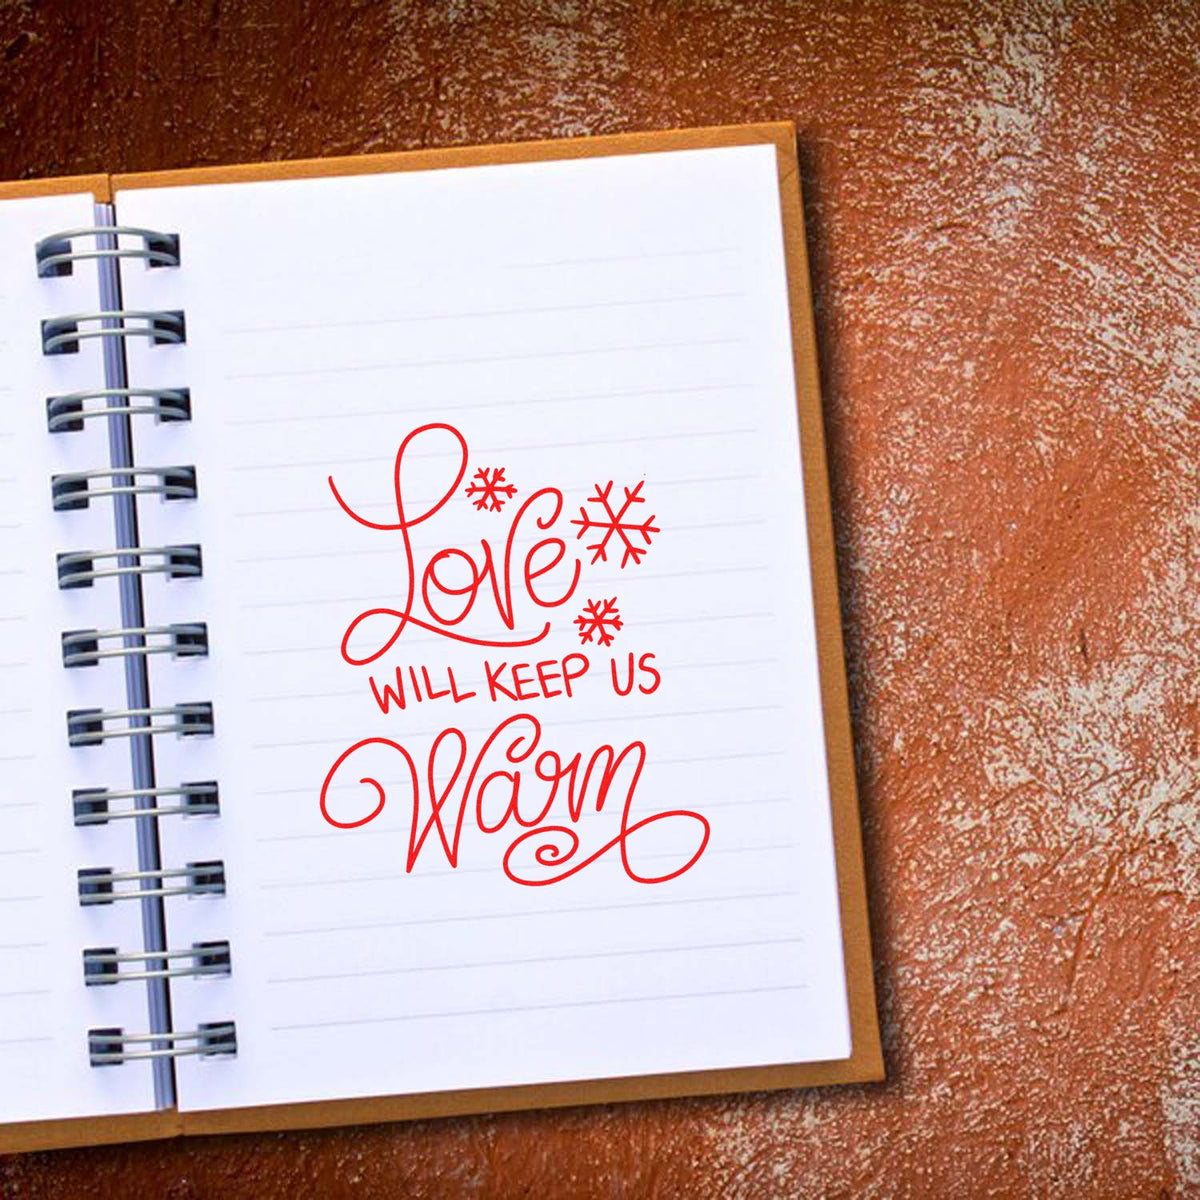 Love
WILL KEEP US
Warm